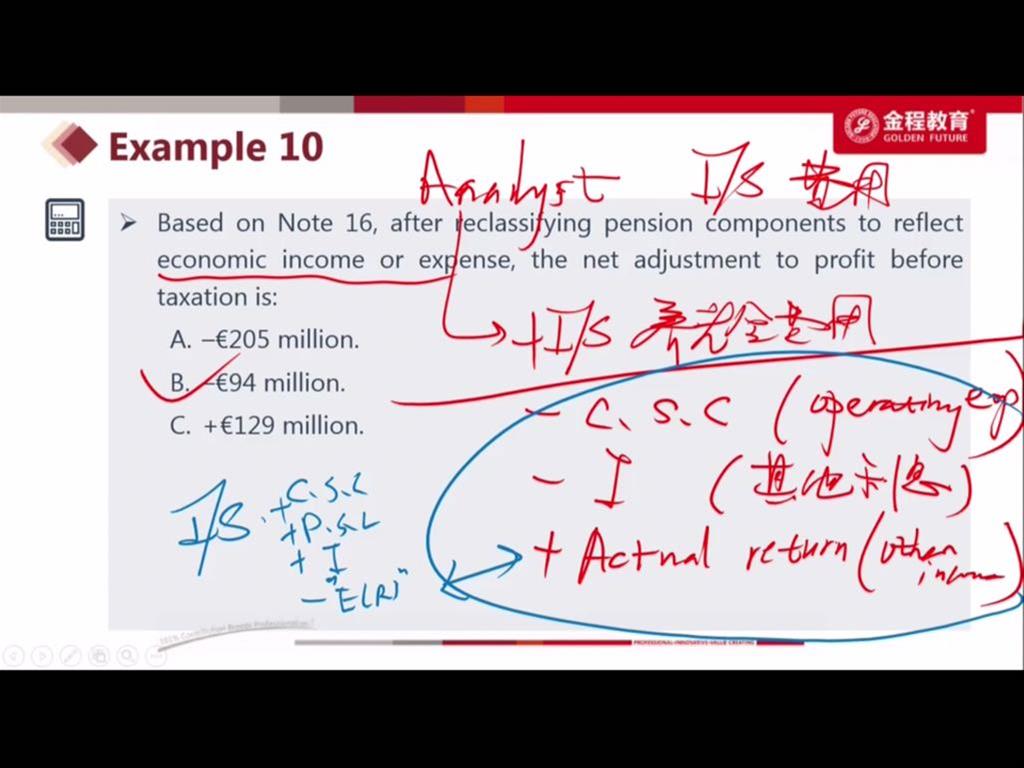 Example 10
金程教育
GOLDEN FUTURE
Analyst I/S 费用
Based on Note 16, after reclassifying pension components to reflect
economic income or expense, the net adjustment to profit before
taxation is:
+I/S 养老金费用
A. –€205 million.
B. –€94 million.
C. +€129 million.
- C.S.C (operating exp)
- I (其他利息)
+ Actual return (other income)
I/S. +C.S.C
+P.S.C
+ I
- "E(R)"
PROFESSIONAL·INNOVATIVE·VALUE CREATING